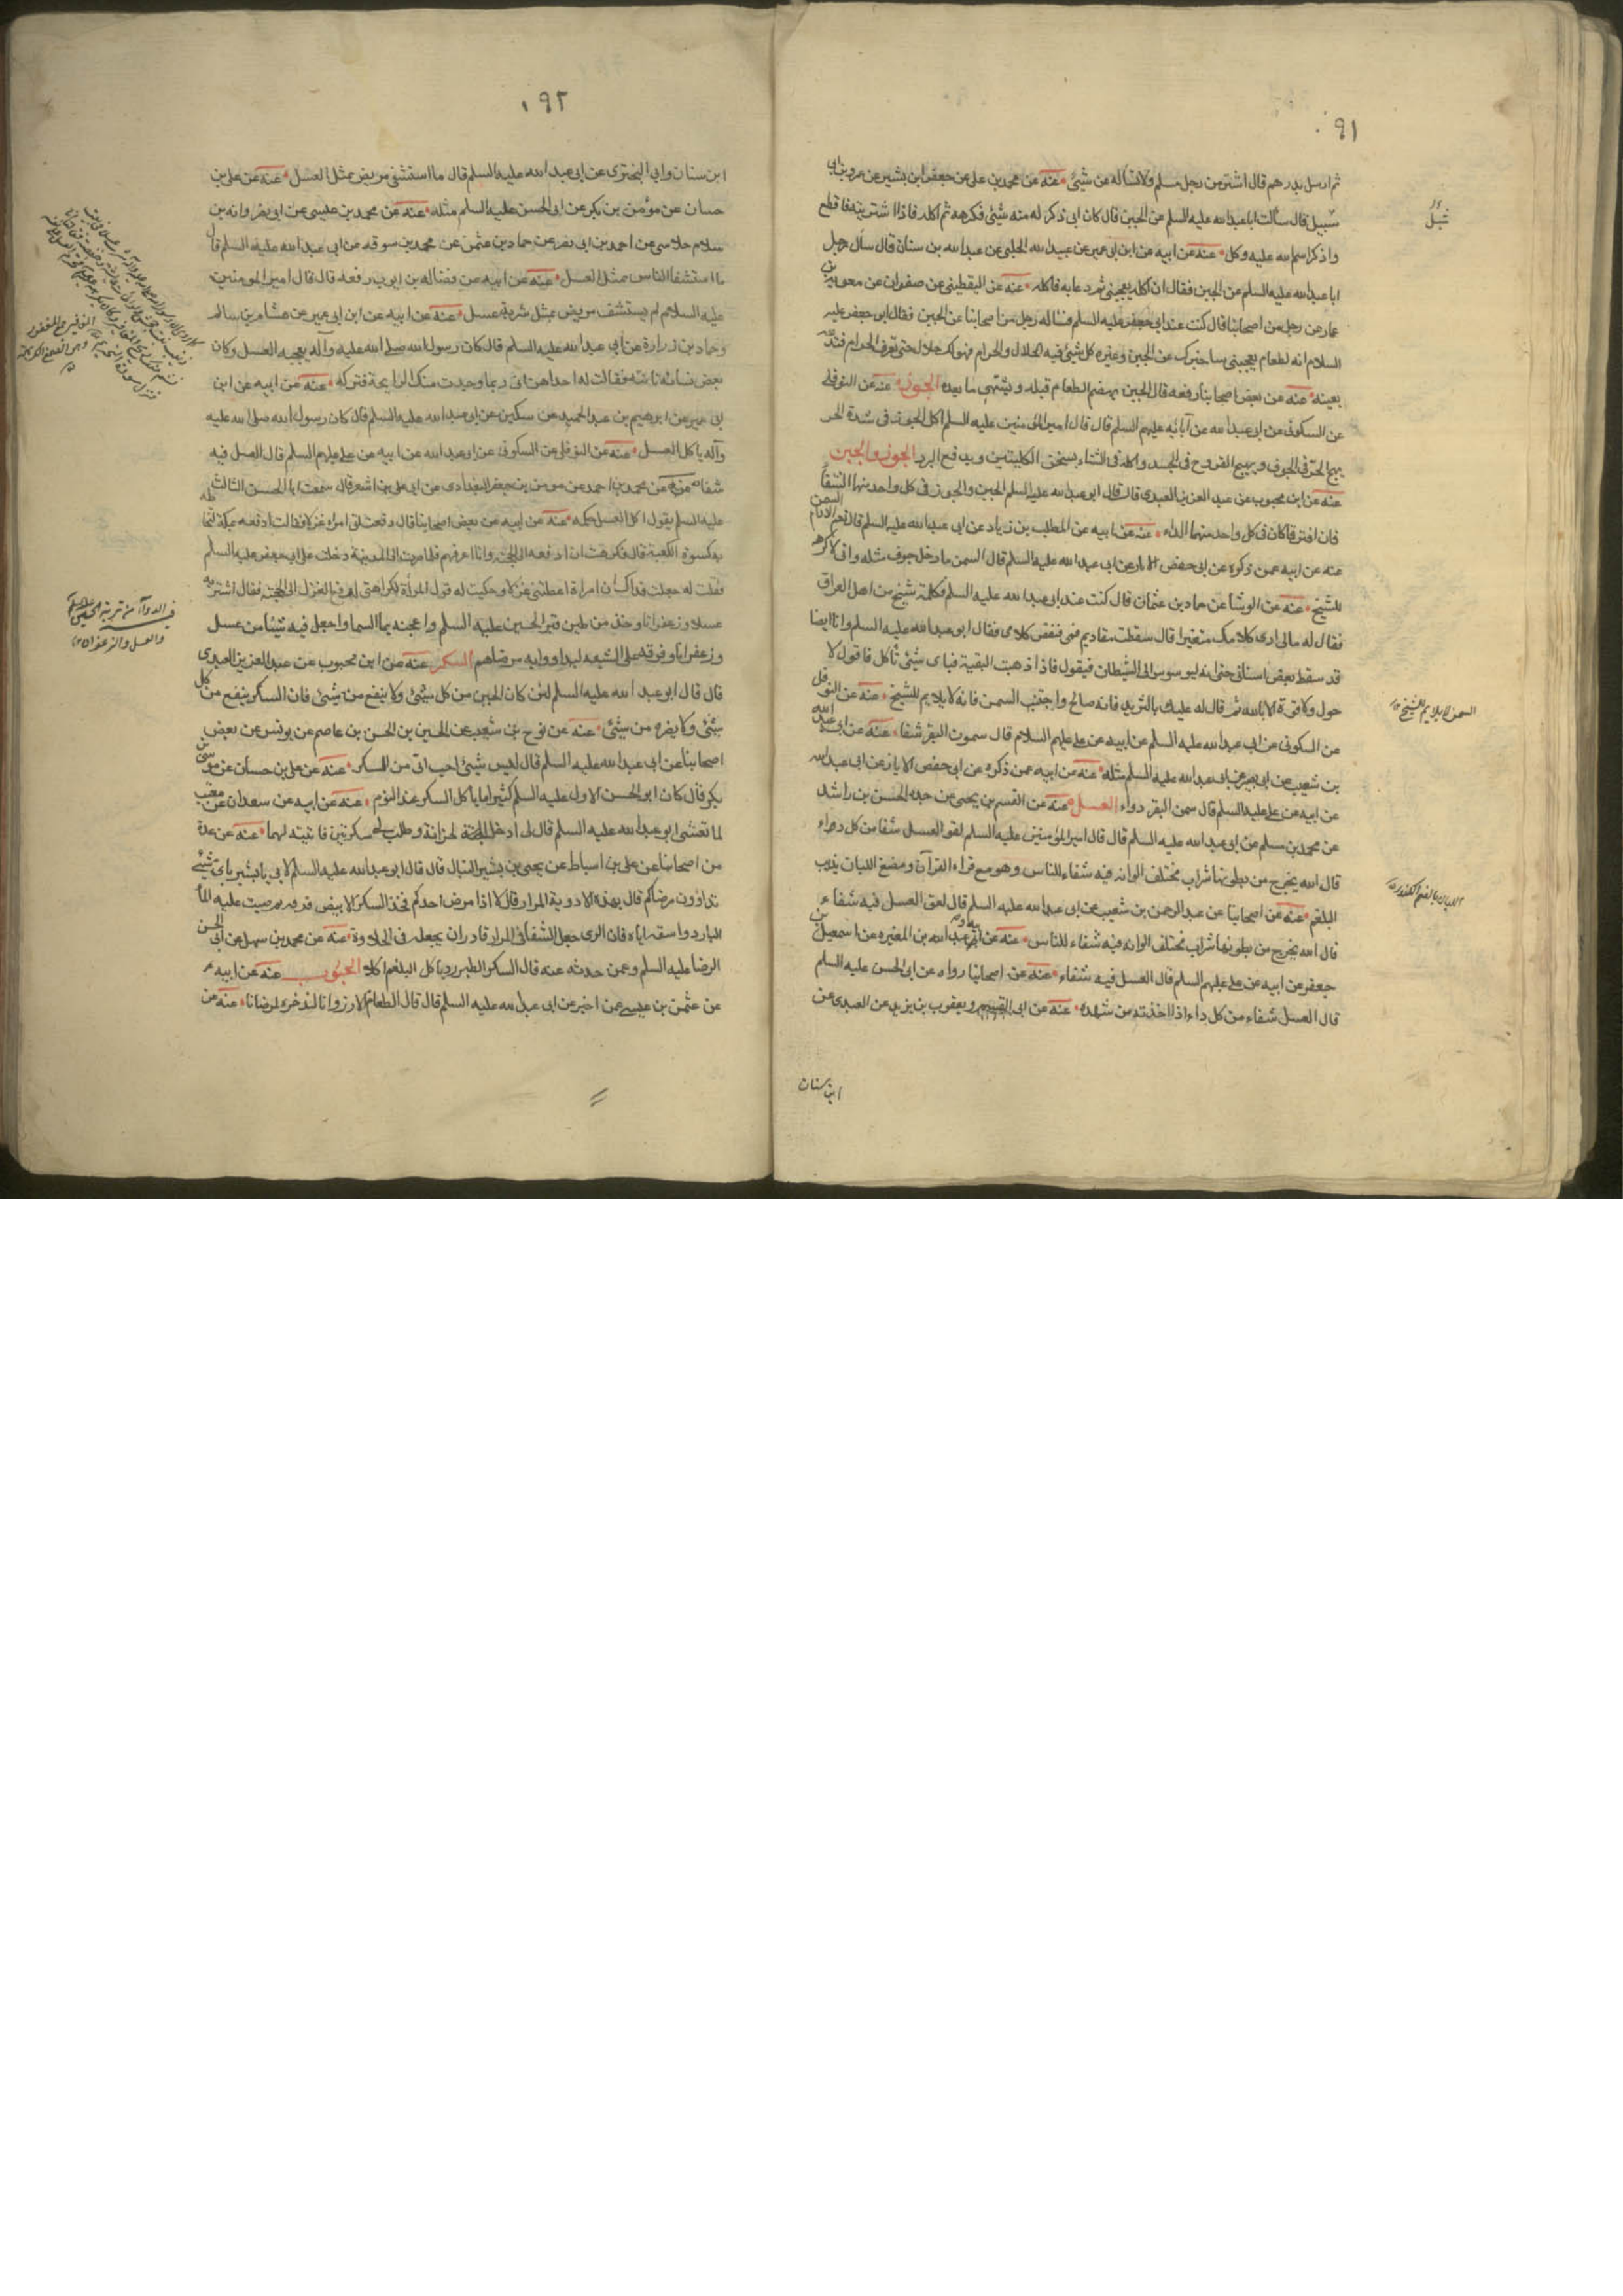 ٠٩١
ثم ارسل بدرهم قال اشتر من رجل مسلم ولا تسأله عن شيئ عنه عن محمد بن علي عن جعفر ابن بشير عن عمرو بن ابى
سبيل قال سألت ابا عبد الله عليه السلم عن الجبن قال كان ابى ذكر له منه شيئ فكرهه ثم اكله فاذا اشتريته فاقطع
واذكر اسم الله عليه وكل عنه عن ابيه عن ابن ابى عمير عن عبيد الله الحلبى عن عبد الله بن سنان قال سأل رجل
ابا عبد الله عليه السلم عن الجبن فقال ان اكله يعجبنى ثم دعا به فاكله عنه عن اليقطينى عن صفوان عن معوية بن
عمار عن رجل من اصحابنا قال كنت عند ابى جعفر عليه السلم فسأله رجل من اصحابنا عن الجبن فقال ابى جعفر عليه
السلام انه لطعام يعجبنى ساخبرك عن الجبن وغيره كل شيئ فيه الحلال والحرام فهو لك حلال حتى تعرف الحرام فتدعه
بعينه عنه عن بعض اصحابنا رفعه قال الجبن يهضم الطعام قبله ويشتهى ما بعده الجوز عنه عن النوفلى
عن السكونى عن ابى عبد الله عن آبائه عليهم السلم قال قال امير المؤمنين عليه السلم اكل الجوز فى شدة الحر
يهيج الحر فى الجوف ويهيج القروح فى الجسد واكله فى الشتاء يسخن الكليتين ويدفع البرد الجوز والجبن
عنه عن ابن محبوب عن عبد العزيز العبدى قال قال ابو عبد الله عليه السلم الجبن والجوز فى كل واحد منهما الشفا
فان افترقا كان فى كل واحد منهما الداء عنه عن ابيه عن المطلب بن زياد عن ابى عبد الله عليه السلم قال نعم الادام السمن
عنه عن ابيه عمن ذكره عن ابى حفص الابار عن ابى عبد الله عليه السلم قال السمن ما دخل جوف مثله وانى لاكرهه
للشيخ عنه عن الوشا عن حماد بن عثمان قال كنت عند ابى عبد الله عليه السلم فكلمه شيخ من اهل العراق
فقال له مالى ارى كلامك متغيرا قال سقطت مقاديم فمى فنقص كلامى فقال ابو عبد الله عليه السلم وانا ايضا
قد سقط بعض اسنانى حتى انه ليوسوس الى الشيطان فيقول فاذا ذهبت البقية فباى شيئ تأكل فاقول لا
حول ولا قوة الا بالله ثم قال له عليك بالثريد فانه صالح واجتنب السمن فانه لا يلايم للشيخ عنه عن النوفلى
عن السكونى عن ابى عبد الله عليه السلم عن ابيه عن على عليهم السلام قال سمون البقر شفا عنه عن ابى عبد الله
بن شعيب عن ابى بصير عن ابى عبد الله عليه السلم مثله عنه عن ابيه عمن ذكره عن ابى حفص الابار عن ابى عبد الله
عن ابيه عن على عليه السلم قال سمن البقر دواء العسل عنه عن القسم بن يحيى عن جده الحسن بن راشد
عن محمد بن مسلم عن ابى عبد الله عليه السلم قال قال امير المؤمنين عليه السلم لعق العسل شفا من كل داء
قال الله يخرج من بطونها شراب مختلف الوانه فيه شفاء للناس وهو مع قراءة القرآن ومضغ اللبان يذيب
البلغم عنه عن اصحابنا عن عبد الرحمن بن شعيب عن ابى عبد الله عليه السلم قال لعق العسل فيه شفاء
قال الله يخرج من بطونها شراب مختلف الوانه فيه شفاء للناس عنه عن ابيه عن عبد الله بن المغيره عن اسمعيل بن
جعفر عن ابيه عن على عليهم السلم قال العسل فيه شفاء عنه عن اصحابنا رواه عن ابى الحسن عليه السلم
قال العسل شفاء من كل داء اذا اخذته من شهده عنه عن ابى القسم ويعقوب بن يزيد عن العبدى عن
ابن سنان
السمن لا يلايم للشيخ
اللبان بالضم الكندر
٠٩٢
ابن سنان وابى البخترى عن ابى عبد الله عليه السلم قال ما استشفى مريض بمثل العسل عنه عن على بن
حسان عن موسى بن بكر عن ابى الحسن عليه السلم مثله عنه عن محمد بن عيسى عن ابى نصر وانه بن
عن احمد بن ابى نصر عن حماد بن عثمن عن محمد بن سوقه عن ابى عبد الله عليه السلم قال
ما استشفا الناس بمثل العسل عنه عن ابيه عن فضاله بن ايوب رفعه قال قال امير المؤمنين
عليه السلام لم يستشف مريض بمثل شربة عسل عنه عن ابيه عن ابن ابى عمير عن هشام بن سالم
وحماد بن زرارة عن ابى عبد الله عليه السلم قال كان رسول الله صلى الله عليه وآله يعجبه العسل وكان
بعض نسائه تاتيه فقالت له احداهن انى ربما وجدت منك الرايحة فتركه عنه عن ابيه عن ابن
ابى عمير عن ابرهيم بن عبد الحميد عن سكين عن ابى عبد الله عليه السلم قال كان رسول الله صلى الله عليه
وآله ياكل العسل عنه عن النوفلى عن السكونى عن ابى عبد الله عن ابيه عن على عليهم السلم قال العسل فيه
شفاء عنه عن محمد بن احمد عن موسى بن جعفر البغدادى عن ابى على بن اشعر قال سمعت ابا الحسن الثالث
عليه السلم يقول اكل العسل حكمه عنه عن ابيه عن بعض اصحابنا قال دفعت الى امراه غزلا فقالت ادفعه بمكة ليخاط
به كسوة الكعبة قال فكرهت ان ادفعه الى الحجبة وانا اعرفهم فلما صرت الى المدينة دخلت على ابى جعفر عليه السلم
فقلت له جعلت فداك ان امراة اعطتنى غزلا وحكيت له قول المرأة وكراهتى لدفع الغزل الى الحجبة فقال اشتر به
عسلا وزعفرانا وخذ من طين قبر الحسين عليه السلم واعجنه بماء السما واجعل فيه شيئا من عسل
وزعفرانا وفرقه على الشيعه ليداووا به مرضاهم السكر عنه عن ابن محبوب عن عبد العزيز العبدى
قال قال ابو عبد الله عليه السلم لئن كان الجبن من كل شيئ ولا ينفع من شيئ فان السكر ينفع من كل
شيئ ولا يضره من شيئ عنه عن نوح بن شعيب عن الحسين بن الحسن بن عاصم عن يونس عن بعض
اصحابنا عن ابى عبد الله عليه السلم قال ليس شيئ احب الى من السكر عنه عن على بن حسان عن موسى بن
بكر قال كان ابو الحسن الاول عليه السلم كثيرا ما ياكل السكر عند النوم عنه عن ابيه عن سعدان عن معتب
لما تعشى ابو عبد الله عليه السلم قال لى ادخل الخزانة وطلب لى سكرتين فاتيته بهما عنه عن عدة
من اصحابنا عن على بن اسباط عن يحيى بن بشير النبال قال قال ابو عبد الله عليه السلم لابى يا بشير باى شيئ
تداوون مرضاكم قال بهذه الادوية المرار قال لا اذا مرض احدكم فخذ السكر الابيض فدقه ثم صب عليه الماء
البارد واسقه اياه فان الذى جعل الشفا فى المرار قادر ان يجعله فى الحلاوة عنه عن محمد بن سهل عن ابى الحسن
الرضا عليه السلم وعمن حدثه عنه قال السكر الطبرزد ياكل البلغم اكلا الحبوب عنه عن ابيه
عن عثمن بن عيسى عمن اخبر عن ابى عبد الله عليه السلم قال قال الطعام الارز وانا لندخره لمرضانا عنه عن
فى الدوآء من تربة الحسين عليه السلم
والعسل والزعفران